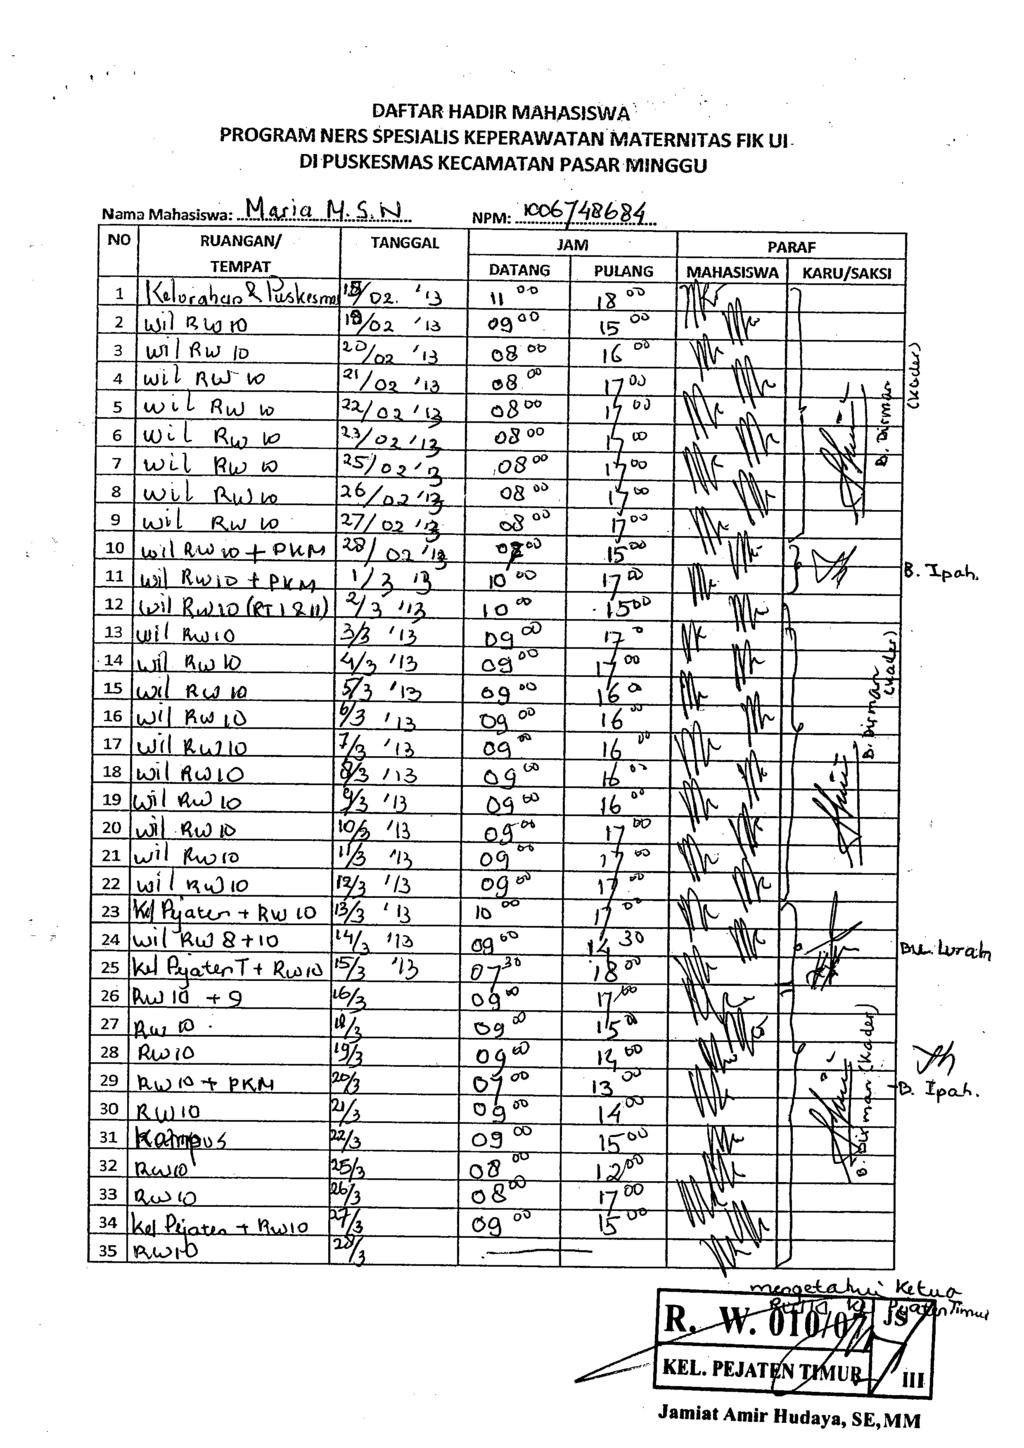 DAFTAR HADIR MAHASISWA
PROGRAM NERS SPESIALIS KEPERAWATAN MATERNITAS FIK UI
DI PUSKESMAS KECAMATAN PASAR MINGGU
Nama Mahasiswa: Maria M.S.N NPM: 1006748684
NO RUANGAN/ TEMPAT TANGGAL JAM PARAF
DATANG PULANG MAHASISWA KARU/SAKSI
1 Kelurahan & Puskesmas 15/02. '13 11 00 18 00
2 Wil RW 10 18/02 '13 09 00 15 00
3 Wil RW 10 20/02 '13 08 00 16 00
4 Wil RW 10 21/02 '13 08 00 17 00
5 Wil RW 10 22/02 '13 08 00 17 00
6 Wil RW 10 23/02 '13 08 00 17 00
7 Wil RW 10 25/02 '13 08 00 17 00
8 Wil RW 10 26/02 '13 08 00 17 00
9 Wil RW 10 27/02 '13 08 00 17 00
B. Dirman (Kader)
10 Wil RW 10 + PKM 28/02 '13 00 15 00
11 Wil RW 10 + PKM 1/3 13 10 00 17 00
B. Ipah.
12 Wil RW 10 (RT 1 & 11) 2/3 '13 10 00 15 00
13 Wil RW 10 3/3 '13 09 00 17 0
14 Wil RW 10 4/3 '13 09 00 17 00
15 Wil RW 10 5/3 '13 09 00 16 0
16 Wil RW 10 6/3 '13 09 00 16 00
17 Wil RW 10 7/3 '13 09 00 16 00
18 Wil RW 10 8/3 '13 09 00 16 00
19 Wil RW 10 9/3 '13 09 00 16 00
20 Wil RW 10 10/3 '13 09 00 17 00
21 Wil RW 10 11/3 '13 09 00 17 00
22 Wil RW 10 12/3 '13 09 00 17 00
B. Dirman (Kader)
23 Kel Pejaten + RW 10 13/3 '13 10 00 17 00
24 Wil RW 8 + 10 14/3 '13 09 00 14 30
25 Kel Pejaten T + RW 10 15/3 '13 07 30 18 00
Bu. Lurah
26 RW 10 + 9 16/3 09 00 17 00
27 RW 10 18/3 09 00 15 00
28 RW 10 19/3 09 00 14 00
29 RW 10 + PKM 20/3 07 00 13 00
B. Ipah.
30 RW 10 21/3 09 00 14 00
31 Kampus 22/3 09 00 15 00
32 RW 10 25/3 08 00 12 00
33 RW 10 26/3 08 00 17 00
34 Kel Pejaten + RW 10 27/3 09 00 15 00
35 RW 10 28/3
B. Dirman (Kader)
mengetahui Ketua
Pejaten Timur
R. W. 010/07 JS
KEL. PEJATEN TIMUR III
Jamiat Amir Hudaya, SE, MM